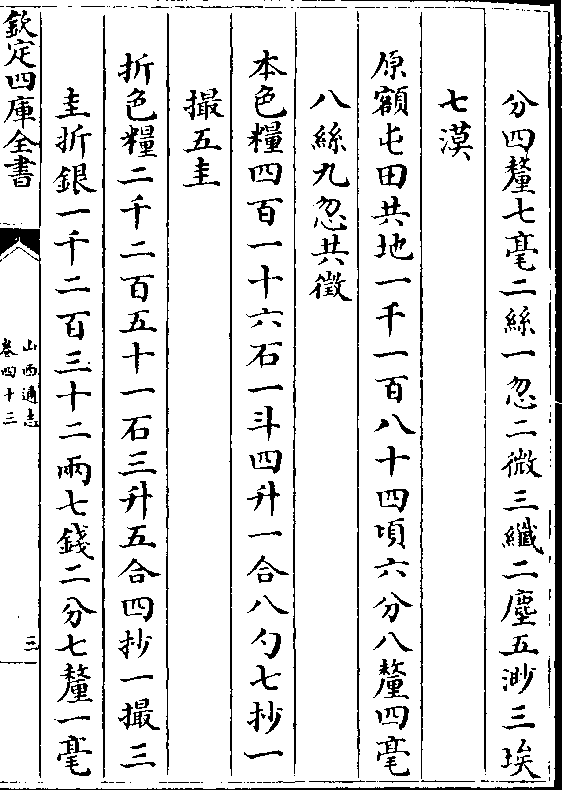 分四釐七毫二絲一忽二微三纖二塵五渺三埃
七漠
原額屯田共地一千一百八十四頃六分八釐四毫
八絲九忽共徵
本色糧四百一十六石一斗四升一合八勺七抄一
撮五圭
折色糧二千二百五十一石三升五合四抄一撮三
圭折銀一千二百三十二兩七錢二分七釐一毫
欽定四庫全書
山西通志
卷四十三
三